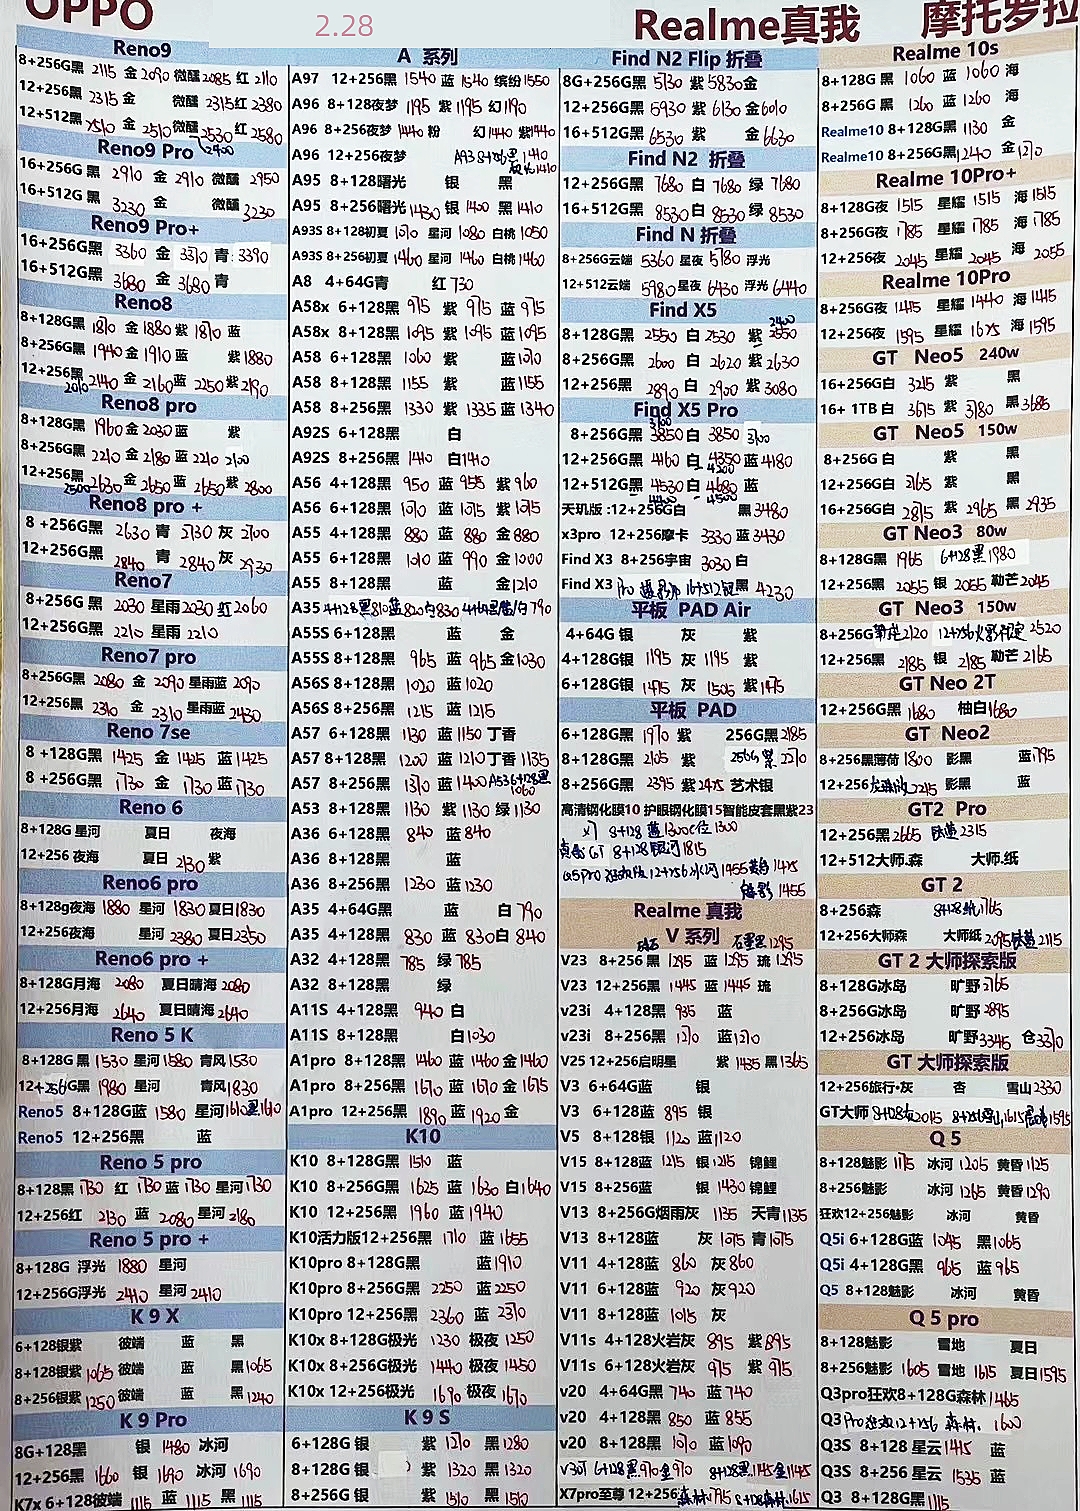 OPPO
2.28
Realme真我
摩托罗拉
Reno9
8+256G黑 2115 金 2090 微醺 2085 红 2110
12+256黑 2315 金 微醺 2315 红 2380
12+512黑 2510 金 2510 微醺 2530 红 2580
2400
Reno9 Pro
16+256G 黑 2910 金 2910 微醺 2950
16+512G 黑 3230 金 微醺 3230
Reno9 Pro+
16+256G黑 3360 金 3370 青 3390
16+512G黑 3680 金 3680 青
Reno8
8+128G黑 1810 金 1880 紫 1810 蓝
8+256G黑 1940 金 1910 蓝 紫 1880
12+256黑 2140 金 2160 蓝 2250 紫 2190
2010
Reno8 pro
8+128G黑 1960 金 2030 蓝 紫
8+256G黑 2210 金 2180 蓝 2210 2100
12+256黑 2630 金 2650 蓝 2650 紫 2800
2500
Reno8 pro +
8 +256G黑 2630 青 2730 灰 2700
12+256G黑 2840 青 2840 灰 2930
Reno7
8+256G 黑 2030 星雨 2030 红 2060
12+256G黑 2210 星雨 2210
Reno7 pro
8+256G黑 2080 金 2090 星雨蓝 2090
12+256黑 2310 金 2310 星雨蓝 2430
Reno 7se
8 +128G黑 1425 金 1425 蓝 1425
8 +256G黑 1730 金 1730 蓝 1730
Reno 6
8+128G 星河 夏日 夜海
12+256 夜海 夏日 2130 紫
Reno6 pro
8+128g夜海 1880 星河 1830 夏日 1830
12+256夜海 星河 2380 夏日 2350
Reno6 pro +
8+128G月海 2080 夏日晴海 2080
12+256月海 2640 夏日晴海 2640
Reno 5 K
8+128G 黑 1530 星河 1580 青风 1530
12+256G黑 1980 星河 青风 1830
Reno5 8+128G蓝 1580 星河 1610 黑 1610
Reno5 12+256黑 蓝
Reno 5 pro
8+128黑 1730 红 1730 蓝 1730 星河 1730
12+256红 2130 蓝 2080 星河 2180
Reno 5 pro +
8+128G 浮光 1880 星河
12+256G浮光 2410 星河 2410
K 9 X
6+128银紫 彼端 蓝 黑
8+128银紫 1065 彼端 蓝 黑 1065
8+256银紫 1250 彼端 蓝 黑 1240
K 9 Pro
8G+128黑 银 1480 冰河
12+256黑 1660 银 1690 冰河 1690
K7x 6+128彼端 1115 蓝 1115 黑 1115
A 系列
A97 12+256黑 1540 蓝 1540 缤纷 1550
A96 8+128夜梦 1195 紫 1195 幻 1190
A96 8+256夜梦 1440 粉 幻 1440 紫 1440
A96 12+256夜梦 A93 8+256黑 1410
极光 1410
A95 8+128曙光 银 黑
A95 8+256曙光 1430 银 1400 黑 1410
A93S 8+128初夏 1070 星河 1080 白桃 1050
A93S 8+256初夏 1460 星河 1460 白桃 1460
A8 4+64G青 红 730
A58x 6+128黑 975 紫 975 蓝 975
A58x 8+128黑 1095 紫 1095 蓝 1095
A58 6+128黑 1060 紫 蓝 1070
A58 8+128黑 1155 紫 蓝 1155
A58 8+256黑 1330 紫 1335 蓝 1340
A92S 6+128黑 白
A92S 8+256黑 1410 白 1410
A56 4+128黑 950 蓝 955 紫 960
A56 6+128黑 1070 蓝 1075 紫 1075
A55 4+128黑 880 蓝 880 金 880
A55 6+128黑 1010 蓝 990 金 1000
A55 8+128黑 蓝 金 1210
A35 4+128黑 810 蓝 820 白 830 4+64黑蓝/白 790
A55S 6+128黑 蓝 金
A55S 8+128黑 965 蓝 965 金 1030
A56S 8+128黑 1020 蓝 1020
A56S 8+256黑 1215 蓝 1215
A57 6+128黑 1130 蓝 1150 丁香
A57 8+128黑 1200 蓝 1210 丁香 1135
A57 8+256黑 1370 蓝 1400 A53 6+128黑
1060
A53 8+128黑 1130 紫 1130 绿 1130
A36 6+128黑 840 蓝 840
A36 8+128黑 蓝
A36 8+256黑 1230 蓝 1230
A35 4+64G黑 蓝 白 790
A35 4+128黑 830 蓝 830 白 840
A32 4+128黑 785 绿 785
A32 8+128黑 绿
A11S 4+128黑 940 白
A11S 8+128黑 白 1030
A1pro 8+128黑 1460 蓝 1460 金 1460
A1pro 8+256黑 1670 蓝 1670 金 1675
A1pro 12+256黑 1890 蓝 1920 金
K10
K10 8+128G黑 1510 蓝
K10 8+256G黑 1625 蓝 1630 白 1640
K10 12+256黑 1960 蓝 1940
K10活力版12+256黑 1710 蓝 1655
K10pro 8+128G黑 蓝 1910
K10pro 8+256G黑 2250 蓝 2250
K10pro 12+256黑 2360 蓝 2370
K10x 8+128G极光 1230 极夜 1250
K10x 8+256G极光 1440 极夜 1450
K10x 12+256极光 1690 极夜 1670
K 9 S
6+128G 银 紫 1270 黑 1280
8+128G 银 紫 1320 黑 1320
8+256G 银 紫 1510 黑 1510
Find N2 Flip 折叠
8G+256G黑 5730 紫 5830 金
12+256G黑 5930 紫 6130 金 6010
16+512G黑 6530 紫 金 6630
Find N2 折叠
12+256G黑 7680 白 7680 绿 7680
16+512G黑 8530 白 8530 绿 8530
Find N 折叠
8+256G云端 5360 星夜 5780 浮光
12+512云端 5980 星夜 6430 浮光 6440
Find X5
2400
8+128G黑 2550 白 2530 紫 2550
8+256G黑 2600 白 2620 紫 2630
12+256黑 2890 白 2900 紫 3080
Find X5 Pro
3100
8+256G黑 3850 白 3850 3100
12+256G黑 4160 白 4350 蓝 4180
4200
12+512G黑 4530 白 4680 蓝
4400 4500
天玑版 :12+256G白 黑 3480
x3pro 12+256摩卡 3330 蓝 3430
Find X3 8+256宇宙 3030 白
Find X3 Pro 16+512 黑 4230
平板 PAD Air
4+64G 银 灰 紫
4+128G银 1195 灰 1195 紫
6+128G银 1475 灰 1505 紫 1475
平板 PAD
6+128G黑 1970 紫 256G黑 2185
8+128G黑 2105 紫 256G 黑 2270
8+256G黑 2395 紫 2475 艺术银
高清钢化膜10 护眼钢化膜15智能皮套黑紫23
X7 8+128 蓝 1300 C位 1300
真我GT 8+128 银河 1815
Q5Pro 狂欢版 12+256 冰河 1455 黄昏 1475
魅影 1455
Realme 真我
V 系列
石墨黑 1295
V23 8+256 黑 1295 蓝 1295 琉 1295
V23 12+256黑 1445 蓝 1445 琉
v23i 4+128黑 935 蓝
v23i 8+256黑 1270 蓝 1270
V25 12+256启明星 紫 1435 黑 1365
V3 6+64G蓝 银
V3 6+128蓝 895 银
V5 8+128银 1120 蓝 1120
V15 8+128蓝 1215 银 1215 锦鲤
V15 8+256蓝 银 1430 锦鲤
V13 8+256G烟雨灰 1135 天青 1135
V13 8+128蓝 灰 1075 青 1075
V11 4+128蓝 860 灰 860
V11 6+128蓝 920 灰 920
V11 8+128蓝 1015 灰
V11s 4+128火岩灰 895 紫 895
V11s 6+128火岩灰 975 紫 975
v20 4+64G黑 740 蓝 740
v20 4+128黑 850 蓝 855
v20 8+128黑 1070 蓝 1090
V30T 6+128黑 970 金 970 8+128黑 1145 金 1145
X7pro至尊 12+256森林 1795 8+128森林 1615
Realme 10s
8+128G 黑 1060 蓝 1060 海
8+256G 黑 1260 蓝 1260 海
Realme10 8+128G黑 1130 金
Realme10 8+256G黑 1240 金 1270
Realme 10Pro+
8+128G夜 1515 星耀 1515 海 1515
8+256G夜 1785 星耀 1785 海 1785
12+256夜 2045 星耀 2045 海 2055
Realme 10Pro
8+256G夜 1415 星耀 1440 海 1415
12+256夜 1595 星耀 1675 海 1595
GT Neo5 240w
16+256G白 3215 紫 黑
16+ 1TB 白 3675 紫 3780 黑 3685
GT Neo5 150w
8+256G 白 紫 黑
12+256G白 2765 紫 黑
16+256G白 2815 紫 2965 黑 2935
GT Neo3 80w
8+128G黑 1965 6+128黑 1980
12+256黑 2055 银 2055 勒芒 2045
GT Neo3 150w
8+256G 勒芒 2120 12+256火影限定 2520
12+256黑 2185 银 2185 勒芒 2165
GT Neo 2T
12+256G黑 1680 柚白 1680
GT Neo2
8+256黑薄荷 1800 影黑 蓝 1795
12+256 2245 影黑 蓝
GT2 Pro
12+256黑 2665 钛蓝 2315
12+512大师.森 大师.纸
GT 2
8+256森 8+128纸 1765
12+256大师森 大师纸 2095 钛蓝 2115
GT 2 大师探索版
8+128G冰岛 旷野 2765
8+256G冰岛 旷野 2895
12+256冰岛 旷野 3345 仓 3370
GT 大师探索版
12+256旅行·灰 杏 雪山 2330
GT大师 8+128灰 2045 8+256雪山 1615 晨雾 1595
Q 5
8+128魅影 1175 冰河 1205 黄昏 1125
8+256魅影 冰河 1265 黄昏 1290
狂欢12+256魅影 冰河 黄昏
Q5i 6+128G蓝 1045 黑 1065
Q5i 4+128G黑 965 蓝 965
Q5 8+128魅影 冰河 黄昏
Q 5 pro
8+128魅影 雪地 夏日
8+256魅影 1605 雪地 1615 夏日 1595
Q3pro狂欢8+128G森林 1465
Q3 Pro 狂欢 12+256 森林 1600
Q3S 8+128 星云 1415 蓝
Q3S 8+256 星云 1535 蓝
Q3 8+128G黑 1115